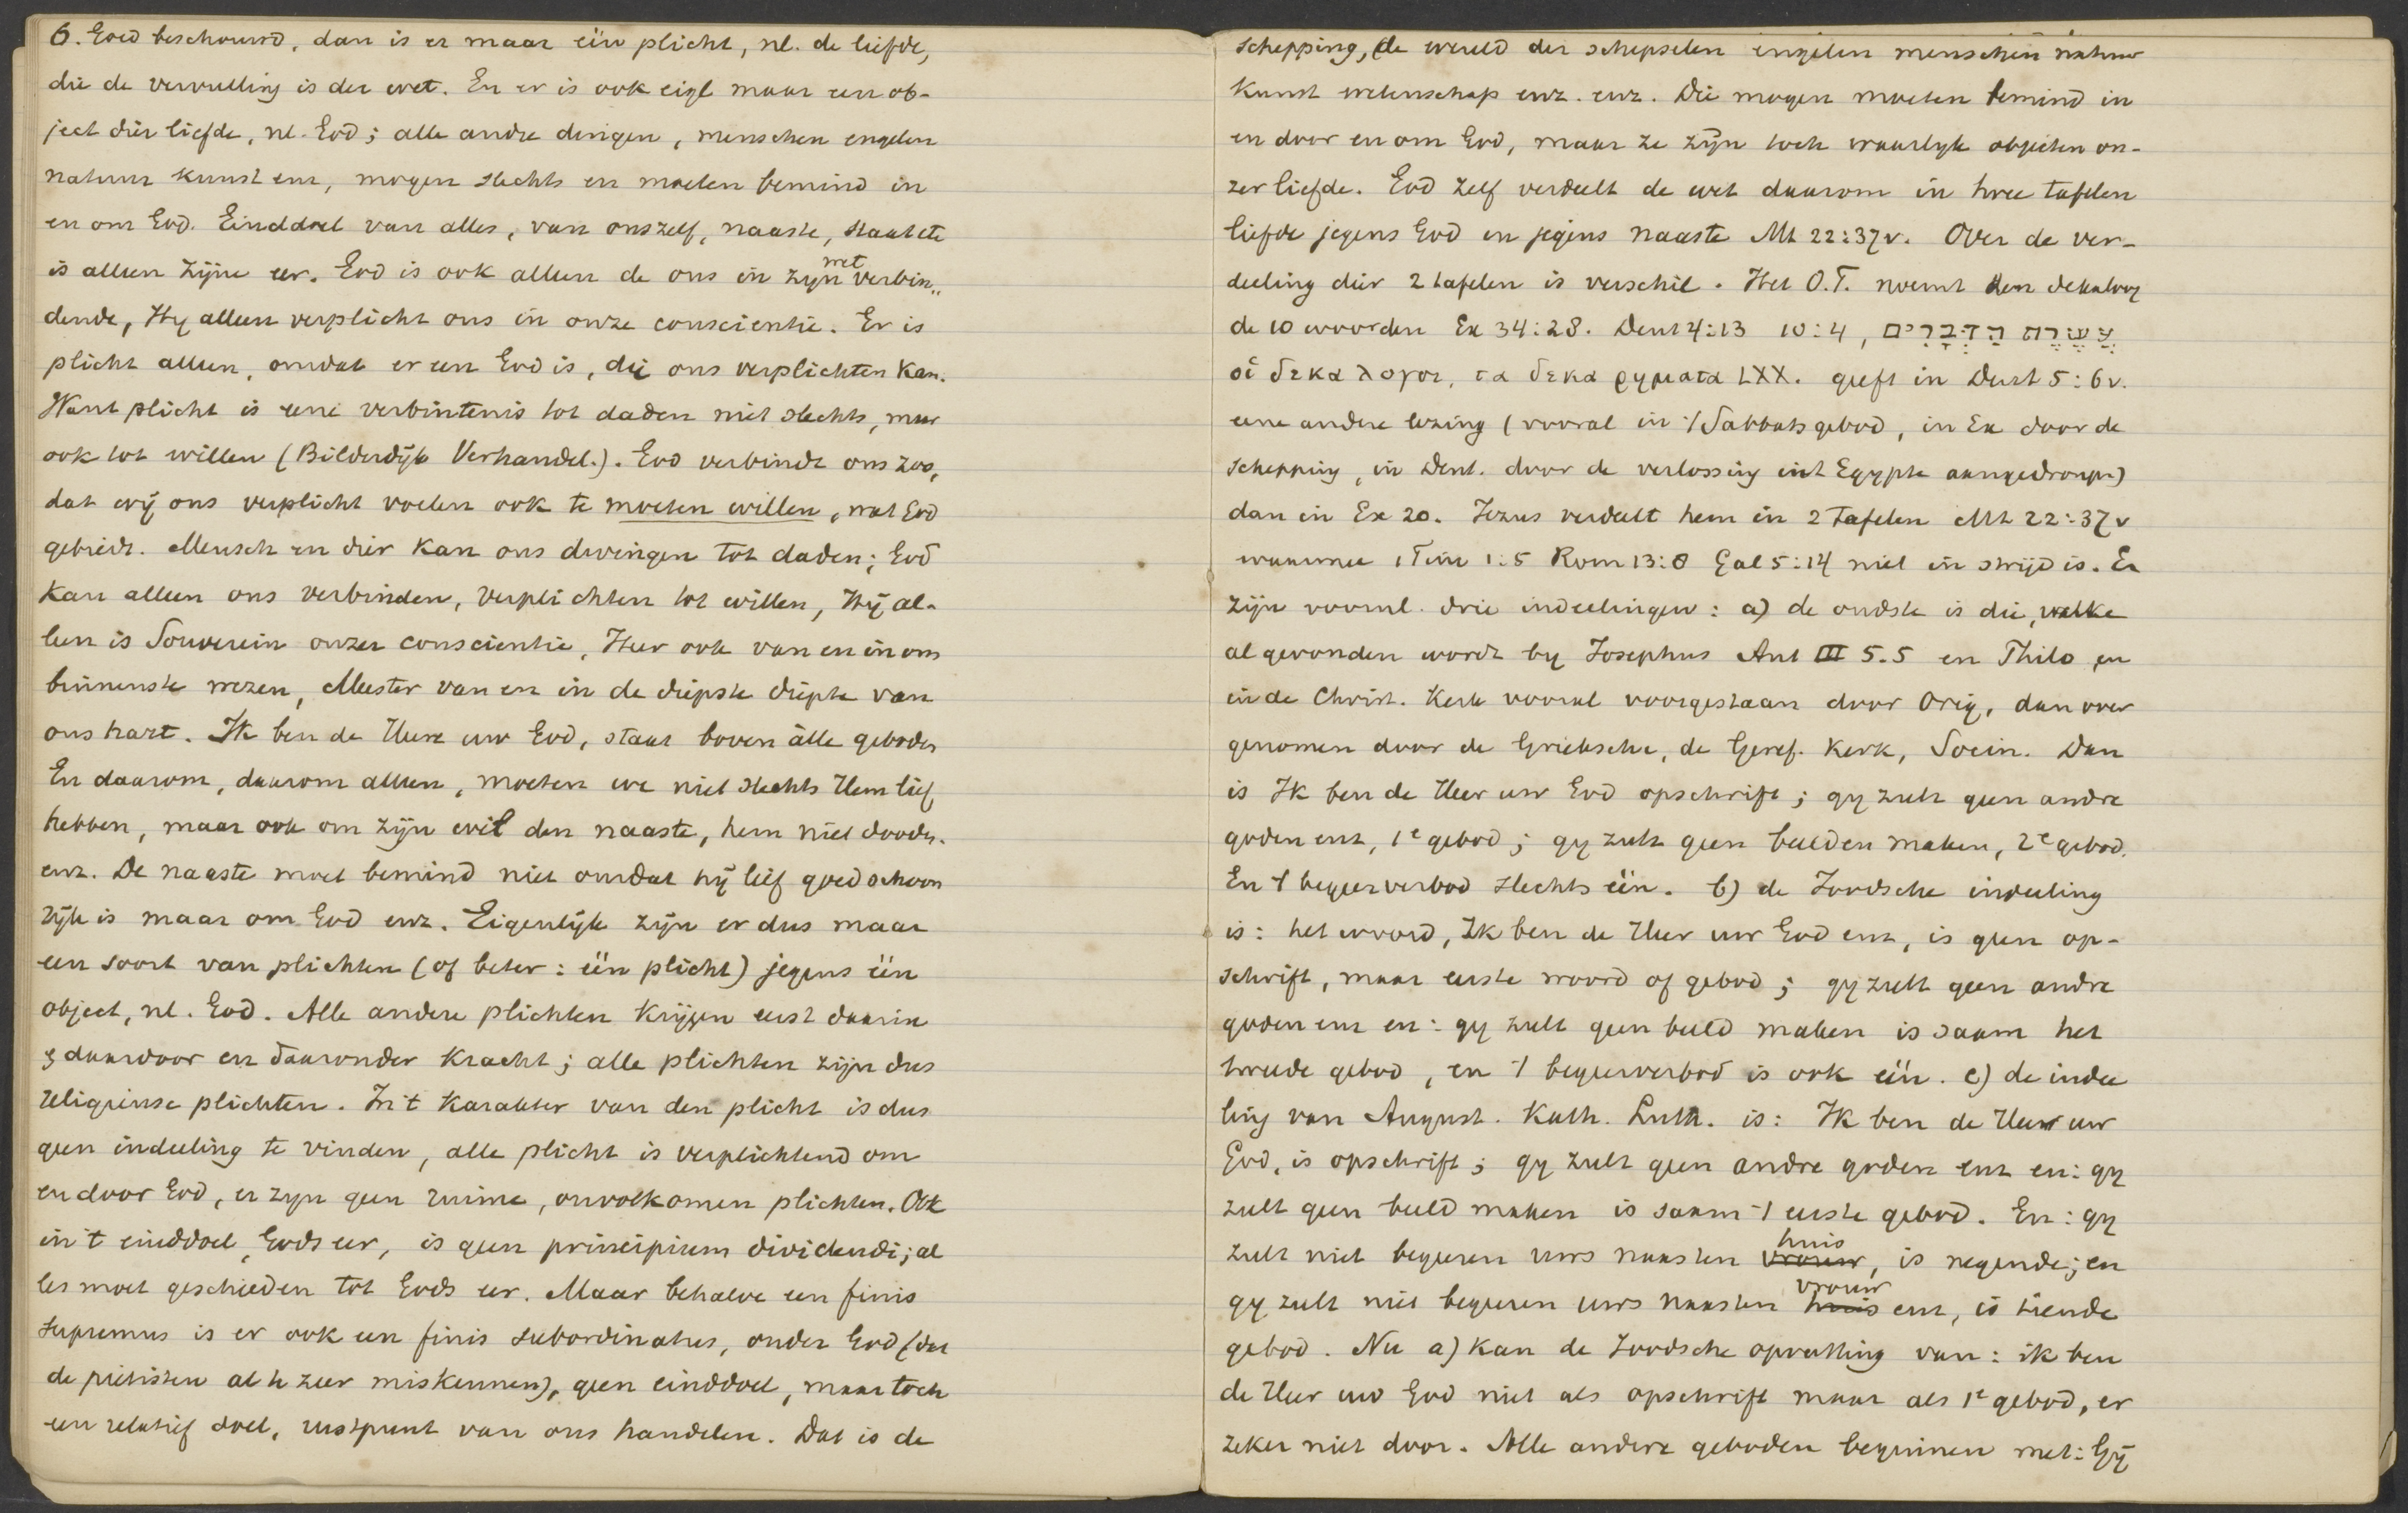 6. Goed beschouwd, dan is er maar één plicht, nl. de liefde,
die de vervulling is der wet. En er is ook eigl maar een ob-
ject dier liefde, nl. God; alle andre dingen, menschen engelen
natuur kunst enz, mogen slechts en moeten bemind in
en om God. Einddoel van alles, van onszelf, naaste, staat etc
is alleen zijne eer. God is ook alleen de ons in zyn wet verbin„
dende, Hy alleen verplicht ons in onze conscientie. Er is
plicht alleen, omdat er een God is, die ons verplichten kan.
Want plicht is eene verbintenis tot daden niet slechts, maar
ook tot willen (Bilderdijk Verhandel.). God verbindt ons zoo,
dat wij ons verplicht voelen ook te moeten willen, wat God
gebiedt. Mensch en dier kan ons dwingen tot daden; God
kan alleen ons verbinden, verplichten tot willen, Hij al-
leen is Souverein onzer conscientie, Heer ook van en in ons
binnenste wezen, Meester van en in de diepste diepte van
ons hart. Ik ben de Heere uw God, staat boven àlle geboden
En daarom, daarom alleen, moeten we niet slechts Hem lief
hebben, maar ook om zijn wil den naaste, hem niet dooden.
enz. De naaste moet bemind niet omdat hij lief goed schoon
rijk is maar om God enz. Eigenlijk zijn er dus maar
een soort van plichten (of beter: één plicht) jegens één
object, nl. God. Alle andere plichten krijgen eerst daarin
& daardoor en daaronder kracht; alle plichten zijn dus
religieuse plichten. In 't karakter van den plicht is dus
geen indeeling te vinden, alle plicht is verplichtend om
en door God, er zyn geen ruime, onvolkomen plichten. Ook
in 't einddoel, Gods eer, is geen principium dividendi; al
les moet geschieden tot Gods eer. Maar behalve een finis
supremus is er ook een finis subordinatus, onder God (dat
de pietisten al te zeer miskennen), geen einddoel, maar toch
een relatief doel, rustpunt van ons handelen. Dat is de
schepping, (de wereld der schepselen engelen menschen natuur
kunst wetenschap enz. enz. Die mogen moeten bemind in
en door en om God, maar ze zijn toch waarlyk objecten on-
zer liefde. God zelf verdeelt de wet daarom in twee tafelen
liefde jegens God en jegens naaste Mt 22:37v. Over de ver-
deeling dier 2 tafelen is verschil. Het O.T. noemt den dekaloog
de 10 woorden Ex 34:28. Deut 4:13 10:4, עֲשֶׂרֶת הַדְּבָרִים
οἱ δεκα λογοι, τα δεκα ρηματα LXX. geeft in Deut 5:6v.
eene andere lezing (vooral in 't Sabbatsgebod, in Ex door de
schepping, in Deut. door de verlossing uit Egypte aangedrongen)
dan in Ex 20. Jezus verdeelt hem in 2 tafelen Mt 22:37v
waarmee 1 Tim 1:5 Rom 13:8 Gal 5:14 niet in strijd is. Er
zijn vooral. drie indeelingen: a) de oudste is die, welke
al gevonden wordt by Josephus Ant III 5.5 en Philo, en
in de Christ. Kerk vooral voorgestaan door Orig, dan over
genomen door de Grieksche, de Geref. Kerk, Socin. Dan
is Ik ben de Heer uw God opschrift; gy zult geen andre
goden enz, 1e gebod; gy zult geen beelden maken, 2e gebod.
En 't begeerverbod slechts één. b) de Joodsche indeeling
is: het woord, Ik ben de Heer uw God enz, is geen op-
schrift, maar eerste woord of gebod; gy zult geen andre
goden enz en: gy zult geen beeld maken is saam het
tweede gebod, en 't begeerverbod is ook één. c) de indee
ling van August. Kath. Luth. is: Ik ben de Heer uw
God, is opschrift; gy zult geen andre goden enz en: gy
zult geen beeld maken is saam 't eerste gebod. En: gy
zult niet begeeren uws naasten vrouw huis, is negende; en
gy zult niet begeeren uws naasten huis vrouw enz, is tiende
gebod. Nu a) kan de Joodsche opvatting van: ik ben
de Heer uw God niet als opschrift maar als 1e gebod, er
zeker niet door. Alle andere geboden beginnen met: Gij